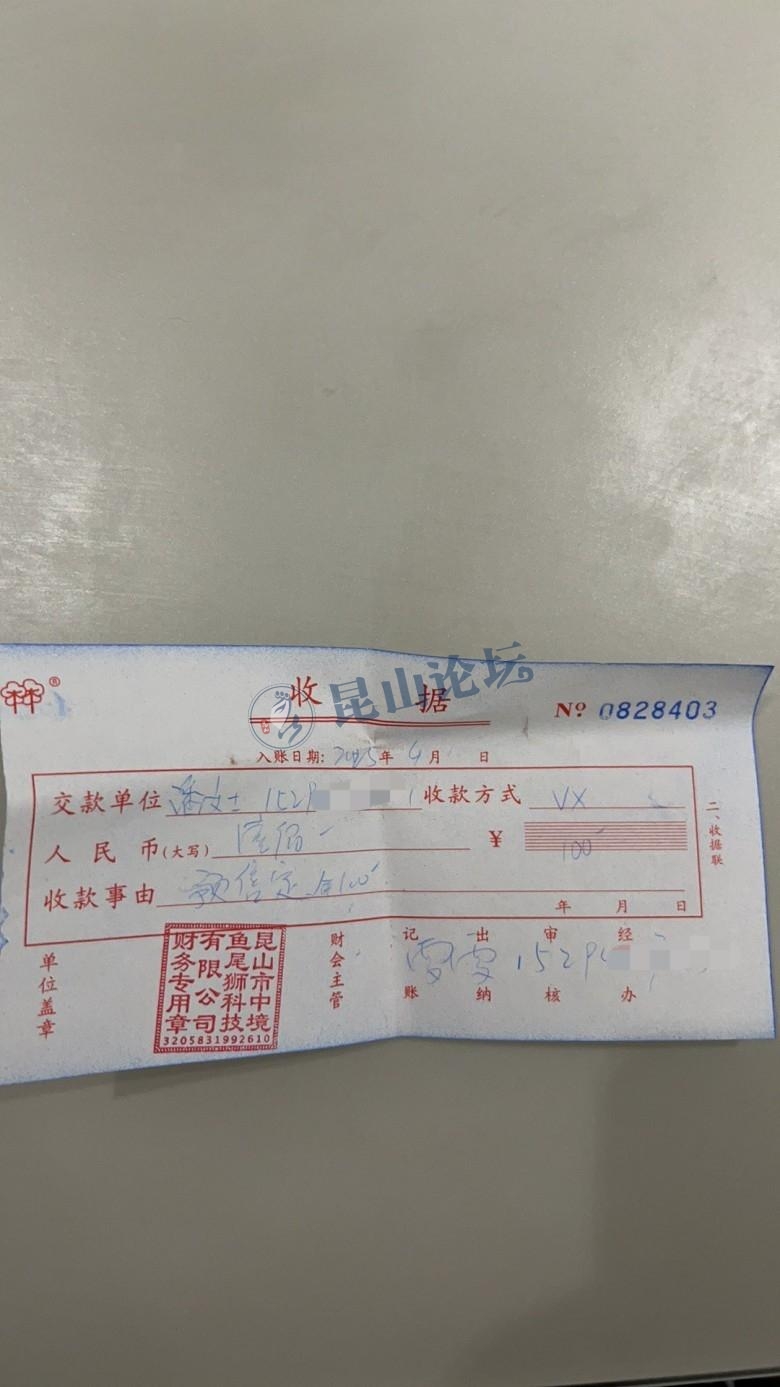 昆山论坛
收 据
№ 0828403
入账日期: 2025年 4月 日
交款单位 潘女士 152 1 收款方式 VX
人民币(大写) 壹佰 ¥ 100
收款事由 预售定金100
年 月 日
二、收据联
单位盖章
昆山市中境鱼尾狮科技有限公司财务专用章
3205831992610
财会主管
记账
出纳
审核
经办
152